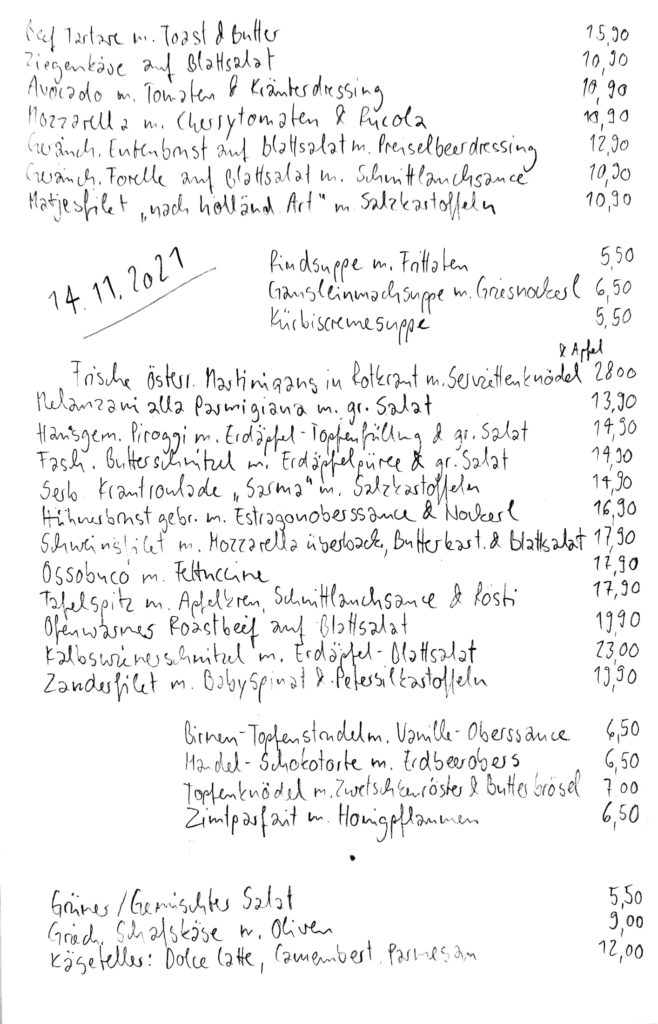 Beef Tartare m. Toast & Butter 15,90
Ziegenkäse auf Blattsalat 10,90
Avocado m. Tomaten & Kräuterdressing 10,90
Mozzarella m. Cherrytomaten & Rucola 10,90
Geräuch. Entenbrust auf Blattsalat m. Preiselbeerdressing 12,90
Geräuch. Forelle auf Blattsalat m. Schnittlauchsauce 10,90
Matjesfilet "nach holländ. Art" m. Salzkartoffeln 10,90
14.11.2021
Rindsuppe m. Frittaten 5,50
Gansleinmachsuppe m. Griesnockerl 6,50
Kürbiscremesuppe 5,50
& Apfel
Frische österr. Martinigans in Rotkraut m. Serviettenknödel 28 00
Melanzani alla Parmigiana m. gr. Salat 13,90
Hausgem. Piroggi m. Erdäpfel-Topfenfüllung & gr. Salat 14,90
Fasch. Butterschnitzel m. Erdäpfelpüree & gr. Salat 14,90
Serb. Krautroulade "Sarma" m. Salzkartoffeln 14,90
Hühnerbrust gebr. m. Estragonoberssauce & Nockerl 16,90
Schweinsfilet m. Mozzarella überback, Butterkart. & Blattsalat 17,90
Ossobuco m. Fettuccine 17,90
Tafelspitz m. Apfelkren, Schnittlauchsauce & Rösti 17,90
Ofenwarmes Roastbeef auf Blattsalat 19,90
Kalbswienerschnitzel m. Erdäpfel-Blattsalat 23,00
Zanderfilet m. Babyspinat & Petersilkartoffeln 19,90
Birnen-Topfenstrudel m. Vanille-Oberssauce 6,50
Mandel-Schokotorte m. Erdbeerobers 6,50
Topfenknödel m. Zwetschkenröster & Butterbrösel 7 00
Zimtparfait m. Honigpflaumen 6,50
Grüner/Gemischter Salat 5,50
Griech. Schafskäse m. Oliven 9,00
Käseteller: Dolce Latte, Camembert, Parmesan 12,00